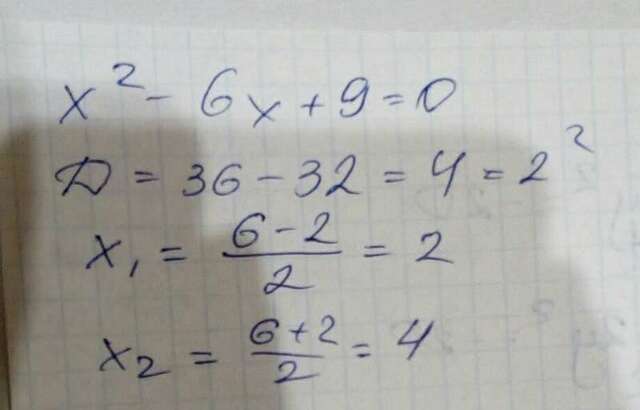 x² - 6x + 9 = 0
D = 36 - 32 = 4 = 2²
x₁ = (6 - 2)/2 = 2
x₂ = (6 + 2)/2 = 4